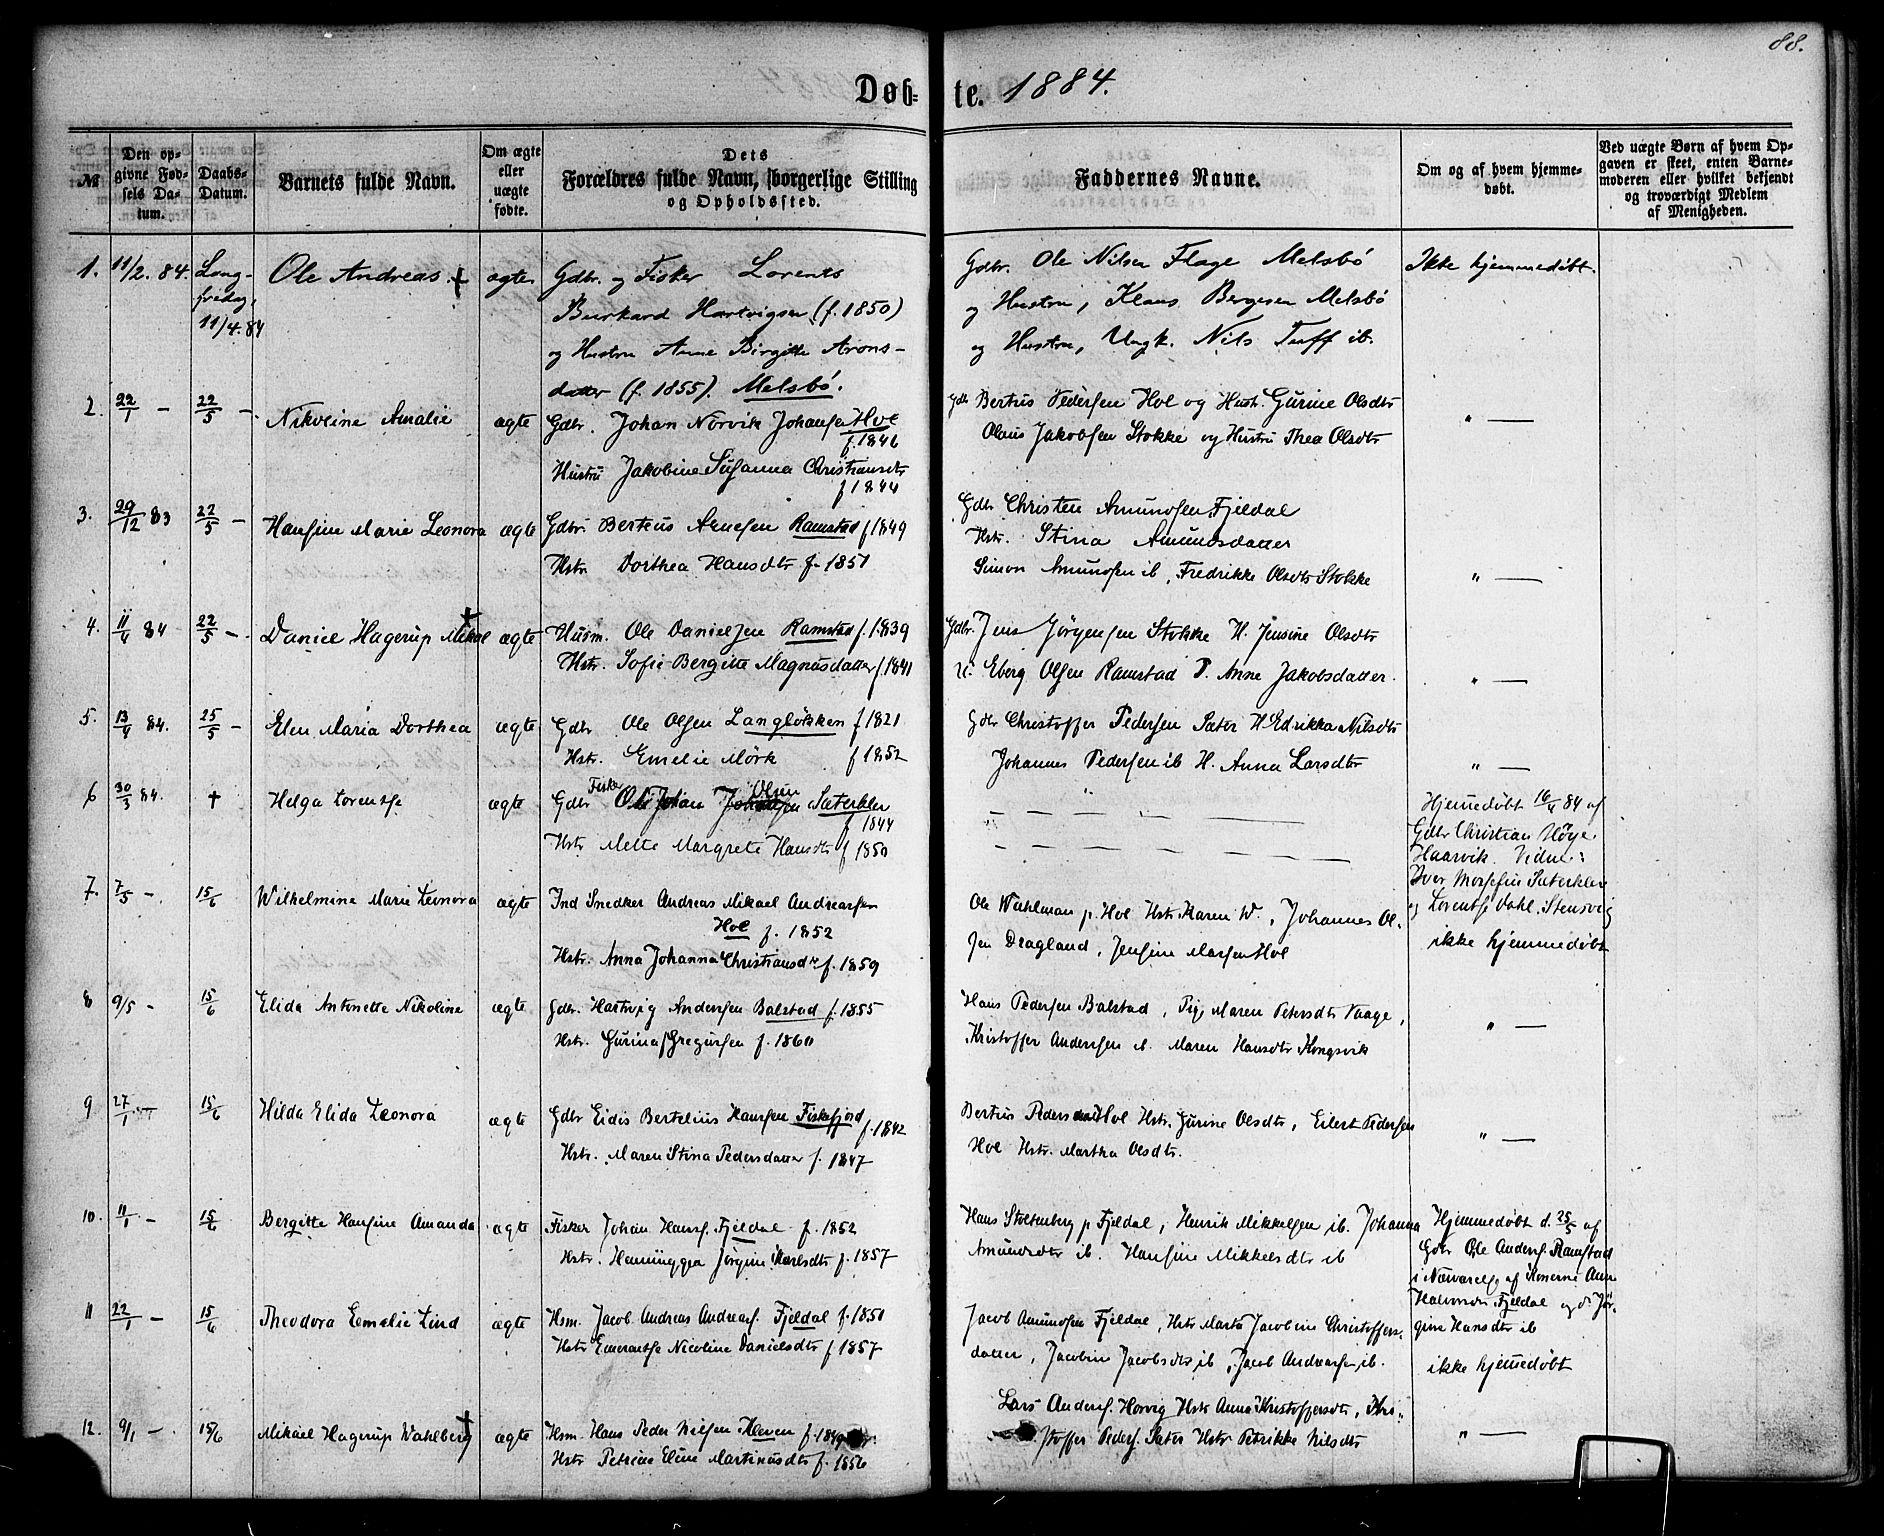 88.
Døb-te. 1884.
№
Den op-
givne Fød-
sels Da-
tum.
Daabs-
Datum.
Barnets fulde Navn.
Om ægte
eller
uægte
fødte.
Dets
Forældres fulde Navn, borgerlige Stilling
og Opholdssted.
Faddernes Navne.
Om og af hvem hjemme-
døbt.
Ved uægte Børn af hvem Op-
gaven er skeet, enten Barne-
moderen eller hvilket bekjendt
og troværdigt Medlem
af Menigheden.
1. 11/2. 84. Lang-
fredag,
11/4. 84
Ole Andreas. +
ægte
Gdbr. og Fisker Lorents
Burkard Hartvigsen (f. 1850)
og Hustru Anne Birgitte Arons-
datter (f. 1855). Melsbö.
Gdbr. Ole Nilsen Flage Melsbö
og Hustru, Klaus Bergesen Melsbö
og Hustru, Ungk. Nils Taff ib.
Ikke hjemmedöbt.
2. 22/1 — 22/5 —
Nikoline Amalie
ægte
Gdbr. Johan Norvik Johansen Hol
f. 1846
Hustru Jakobine Susanna Christiansdtr
f 1844
Gdbr Bertus Pedersen Hol og Hust. Gurine Olsdtr
Olaus Jakobsen Stokke og Hustru Thea Olsdtr
" —
3. 29/12 83 22/5 —
Hansine Marie Leonora
ægte
Gdbr Bertus Arnesen Ramstad f 1849
Hstr Dorthea Hansdtr f. 1851
Gdbr Christen Amundsen Fjeldal
Hstr. Stina Amundsdatter
Simon Amundsen ib, Fredrikke Olsdtr Stokke
" —
4. 11/4 84 22/5 —
Daniel Hagerup Mikal +
ægte
Husm. Ole Danielsen Ramstad f. 1839
Hstr. Sofie Bergitte Magnusdatter f. 1841
Gdbr. Jens Jörgensen Stokke H. Jensine Olsdtr
U. Eberg Olsen Ramstad P. Anne Jakobsdatter.
" —
5. 13/4 84. 25/5 —
Elen Maria Dorthea
ægte
Gdbr Ole Olsen Langlökken f 1821
Hstr. Emelie Mörk f 1852
Gdbr Christoffer Pedersen Sæter H. Edrikka Nilsdtr
Johannes Pedersen ib H. Anna Larsdtr
" —
6 30/3 84. +
Helga Lorentse
ægte
Fisker
Gdbr Ole Johan Olsen Sæterklev
f 1844
Hstr Mette Margrete Hansdtr f 1850
Hjemmedöbt 16/4 84 af
Gdbr Christian Höye
Haarvik. Vidne:
Sæterklev
og Lorentse Dahl, Stensvig
7. 7/5 — 15/6
Wilhelmine Marie Leonora
ægte
Ind Snedker Andreas Mikael Andreassen
Hol f. 1852
Hstr. Anna Johanna Christiansdtr f. 1859
Ole Wahlman p. Hol Hstr. Karen W., Johannes Ol-
sen Dragland, Jensine Hol
ikke hjemmedöbt
8 9/5 — 15/6
Elida Antonette Nikoline
ægte
Gdbr. Hartvig Andersen Balstad f. 1855
Hstr. Gurina Gregursen f. 1860
Hans Pedersen Balstad, Pig. Maren Petersdtr Vaage,
Kristoffer Andersen ib. Maren Hansdtr Kongsvik
" —
9 27/1 — 15/6
Hilda Elida Leonora
ægte
Gdbr Eidis Bertelius Hansen Fiskefjord
f. 1842
Hstr. Maren Stina Pedersdatter f. 1847
Bertus Pedersen Hol Hstr. Gurine Olsdtr, Eilert Pedersen
Hol Hstr. Martha Olsdtr.
" —
10. 11/1 — 15/6
Bergitte Hansine Amanda
ægte
Fisker Johan Hans. Fjeldal f. 1852
Hstr. Jörgine Karlsdtr f. 1857
Hans Stoltenberg p Fjeldal, Henrik Mikkelsen ib. Johanna
Amundsdtr ib. Hansine Mikkelsdtr ib
Hjemmedöbt d. 25/5 af
Gdbr Ole Anders. Ramstad
i Nærværelse af Konerne Ane
Fjeldal og Jör-
gine Hansdtr ib
11 22/1 — 15/6
Theodora Emelie Lind
ægte
Hsm. Jacob Andreas Andreas. Fjeldal f. 1850
Hstr Emerentse Nicoline Danielsdtr f 1857
Jacob Amundsen Fjeldal, Hstr Marta Jacobine Christoffers-
datter, Jacobine Jacobsdtr ib, Jacob Andreassen ib.
ikke hjemmedöbt
12. 9/1 — 15/6
Mikael Hagerup Wahlberg +
ægte
Hsm. Hans Peder Nielsen Kleven f. 1849
Hstr Petrine Eline Martinusdtr f. 1856
Lars Anders. Horvig Hstr Anna Kristoffersdtr, Kri-
stoffer Peders. Sæter Hstr Petrikke Nilsdtr
" —